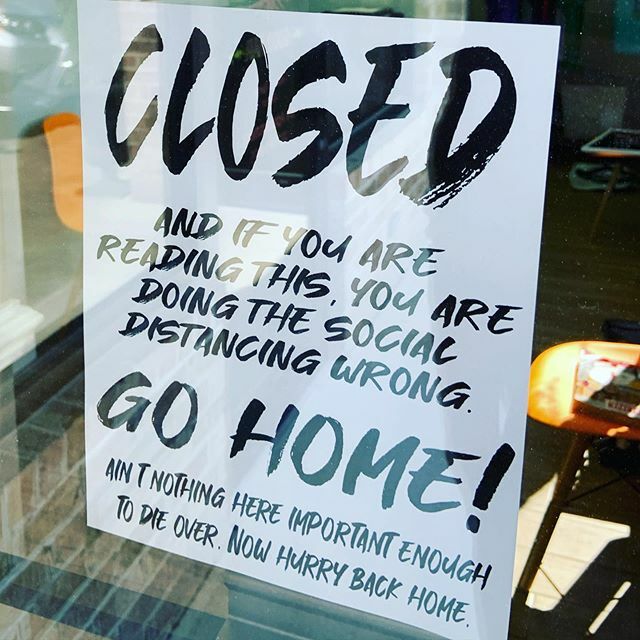 CLOSED
AND IF YOU ARE
READING THIS, YOU ARE
DOING THE SOCIAL
DISTANCING WRONG.
GO HOME!
AIN T NOTHING HERE IMPORTANT ENOUGH
TO DIE OVER. NOW HURRY BACK HOME.